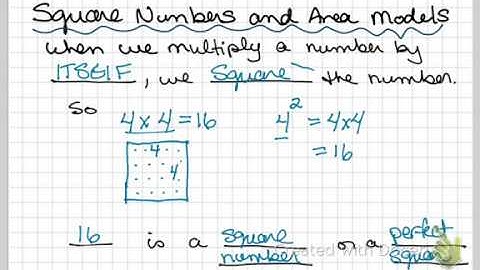 Square Numbers and Area Models
when we multiply a number by
ITSELF, we Square the number.
So 4 x 4 = 16 4² = 4x4
= 16
4
4
16 is a square number or a perfect square